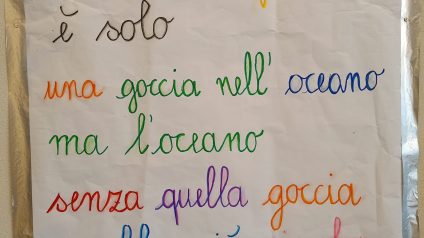 è solo
una goccia nell' oceano
ma l'oceano
senza quella goccia